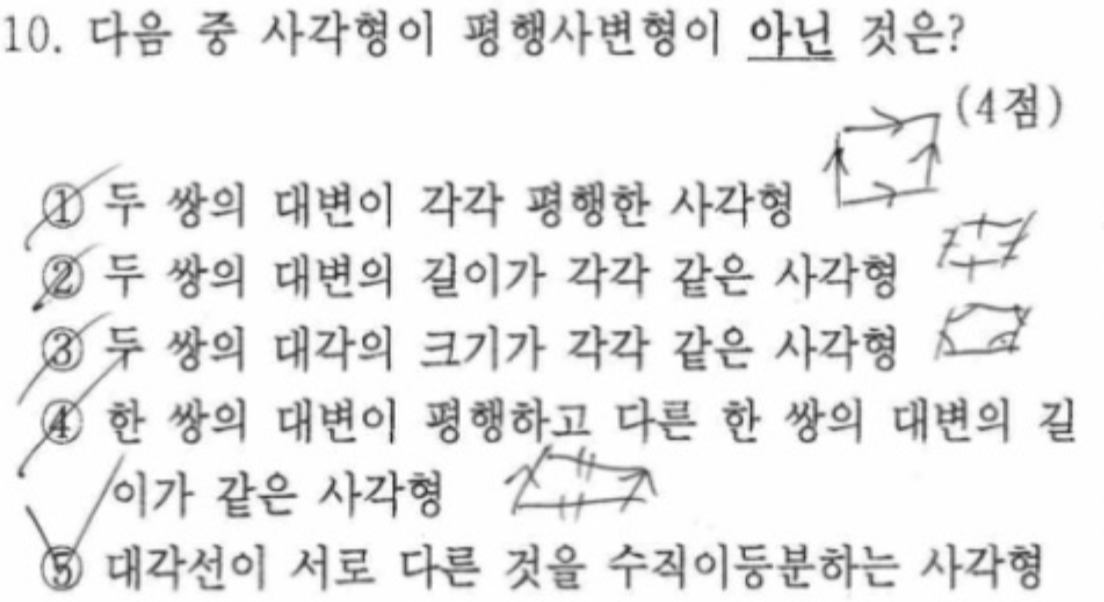 10. 다음 중 사각형이 평행사변형이 아닌 것은?
(4점)
① 두 쌍의 대변이 각각 평행한 사각형
② 두 쌍의 대변의 길이가 각각 같은 사각형
③ 두 쌍의 대각의 크기가 각각 같은 사각형
④ 한 쌍의 대변이 평행하고 다른 한 쌍의 대변의 길
이가 같은 사각형
⑤ 대각선이 서로 다른 것을 수직이등분하는 사각형